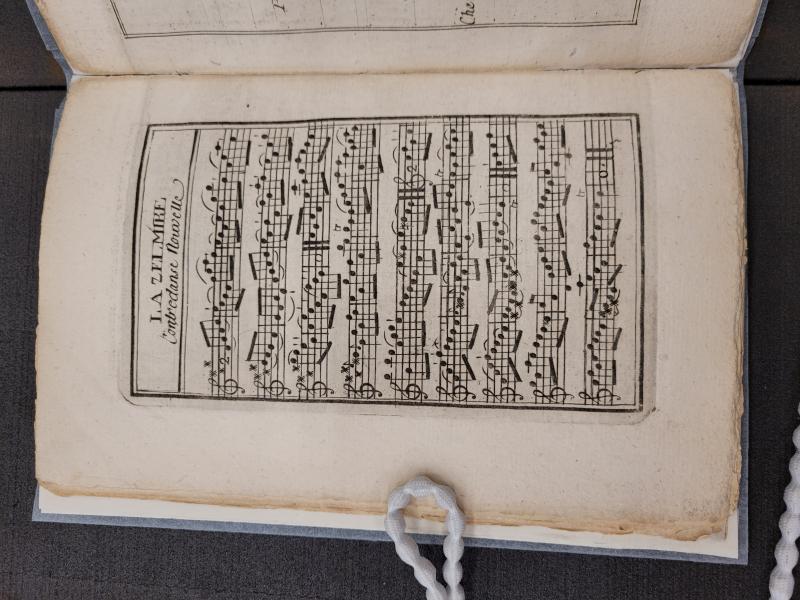 LA ZELMIRE
Contredanse Nouvelle
2
2
Che